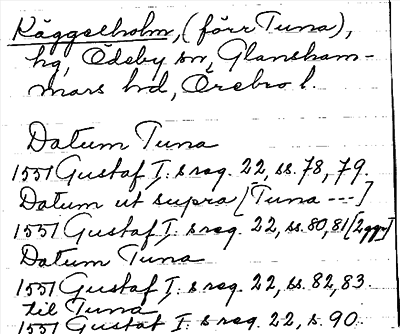 Käggelholm, (förr Tuna),
hg, Ödeby sn, Glansham-
mars hd, Örebro l.
Datum Tuna
1551 Gustaf I:s reg. 22, ss. 78, 79.
Datum ut supra [Tuna ---]
1551 Gustaf I:s reg. 22, ss. 80, 81 [2 ggr]
Datum Tuna
1551 Gustaf I:s reg. 22, ss. 82, 83.
til Tuna
1551 Gustaf I:s reg. 22, s. 90